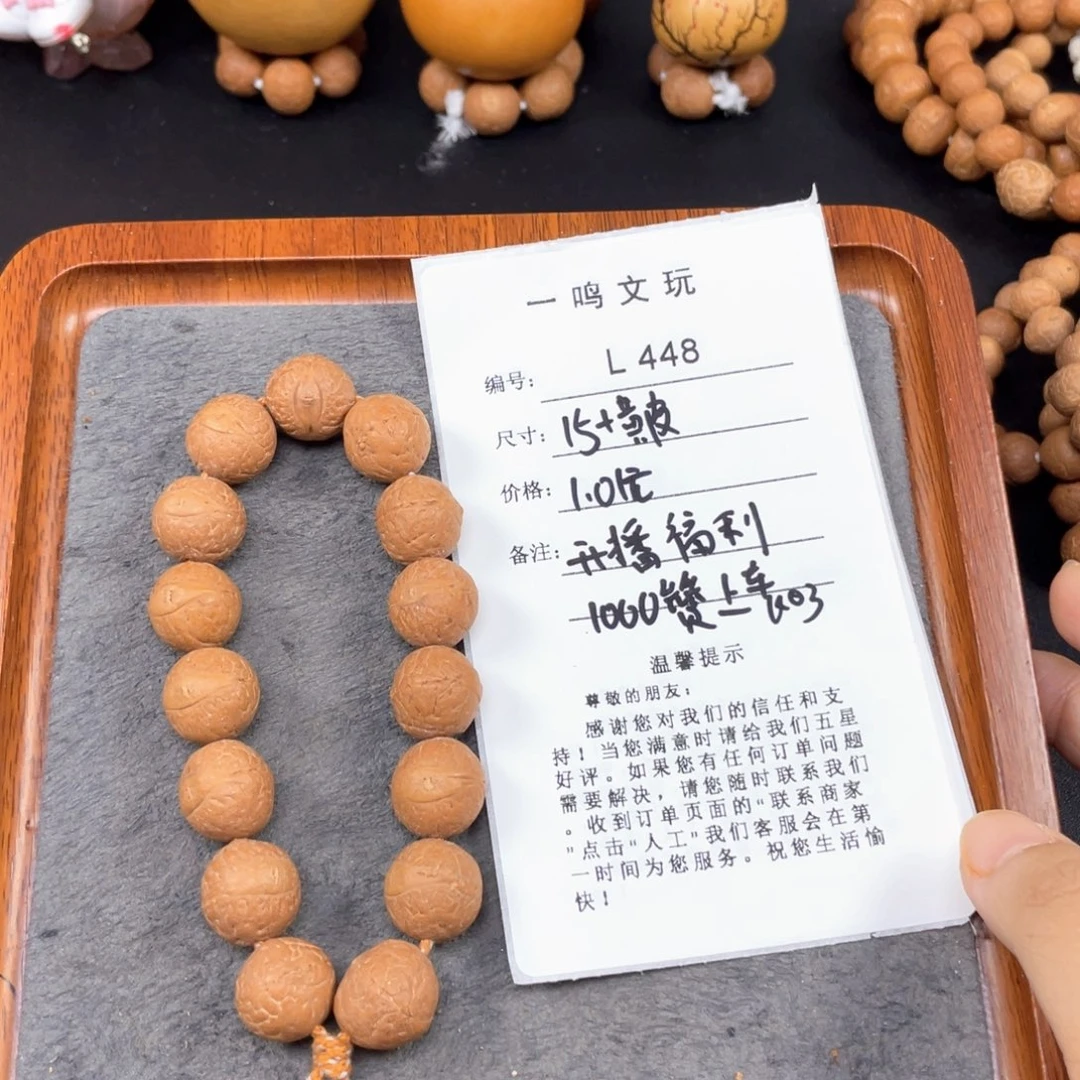 一鸣文玩
编号： L 448
尺寸： 15+ 皮
价格： 1.0
备注：开播福利
1000赞上车
温馨提示
尊敬的朋友：
感谢您对我们的信任和支
持！当您满意时请给我们五星
好评。如果您有任何订单问题
需要解决，请您随时联系我们
。收到订单页面的"联系商家
"点击"人工"我们客服会在第
一时间为您服务。祝您生活愉
快！